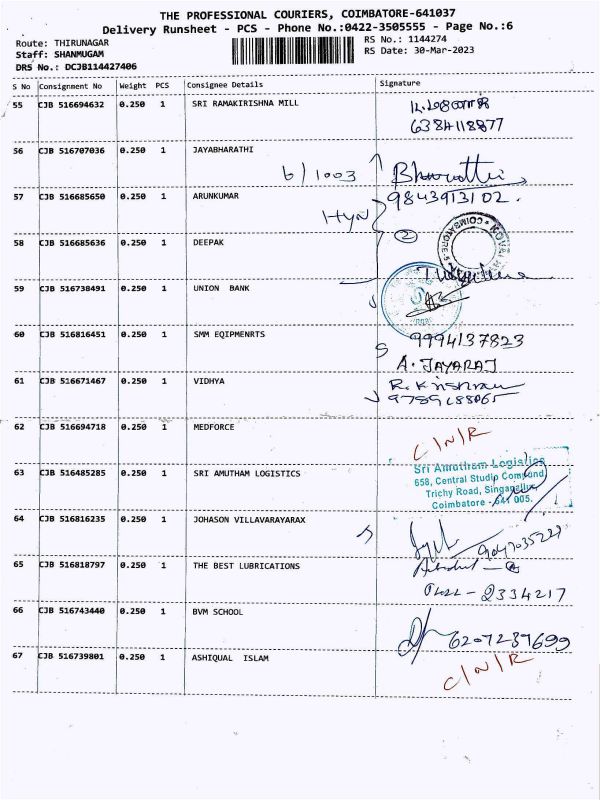 THE PROFESSIONAL COURIERS, COIMBATORE-641037
Delivery Runsheet - PCS - Phone No.:0422-3505555 - Page No.:6
Route: THIRUNAGAR
RS No.: 1144274
Staff: SHANMUGAM
RS Date: 30-Mar-2023
DRS No.: DCJB114427406
S No Consignment No Weight PCS Consignee Details Signature
55 CJB 516694632 0.250 1 SRI RAMAKIRISHNA MILL
6384118877
56 CJB 516707036 0.250 1 JAYABHARATHI
6/1003 Bharathi
57 CJB 516685650 0.250 1 ARUNKUMAR 9843913102.
2
58 CJB 516685636 0.250 1 DEEPAK
COIMBATORE
59 CJB 516738491 0.250 1 UNION BANK
60 CJB 516816451 0.250 1 SMM EQIPMENRTS 9994137823
A. JAYARAJ
61 CJB 516671467 0.250 1 VIDHYA
62 CJB 516694718 0.250 1 MEDFORCE C/N/R
63 CJB 516485285 0.250 1 SRI AMUTHAM LOGISTICS
Sri Amutham Logistics
658, Central Studio Compound,
Trichy Road, Singanallur,
Coimbatore - 641 005.
64 CJB 516816235 0.250 1 JOHASON VILLAVARAYARAX
65 CJB 516818797 0.250 1 THE BEST LUBRICATIONS
2334217
66 CJB 516743440 0.250 1 BVM SCHOOL
6207237699
67 CJB 516739801 0.250 1 ASHIQUAL ISLAM C/N/R